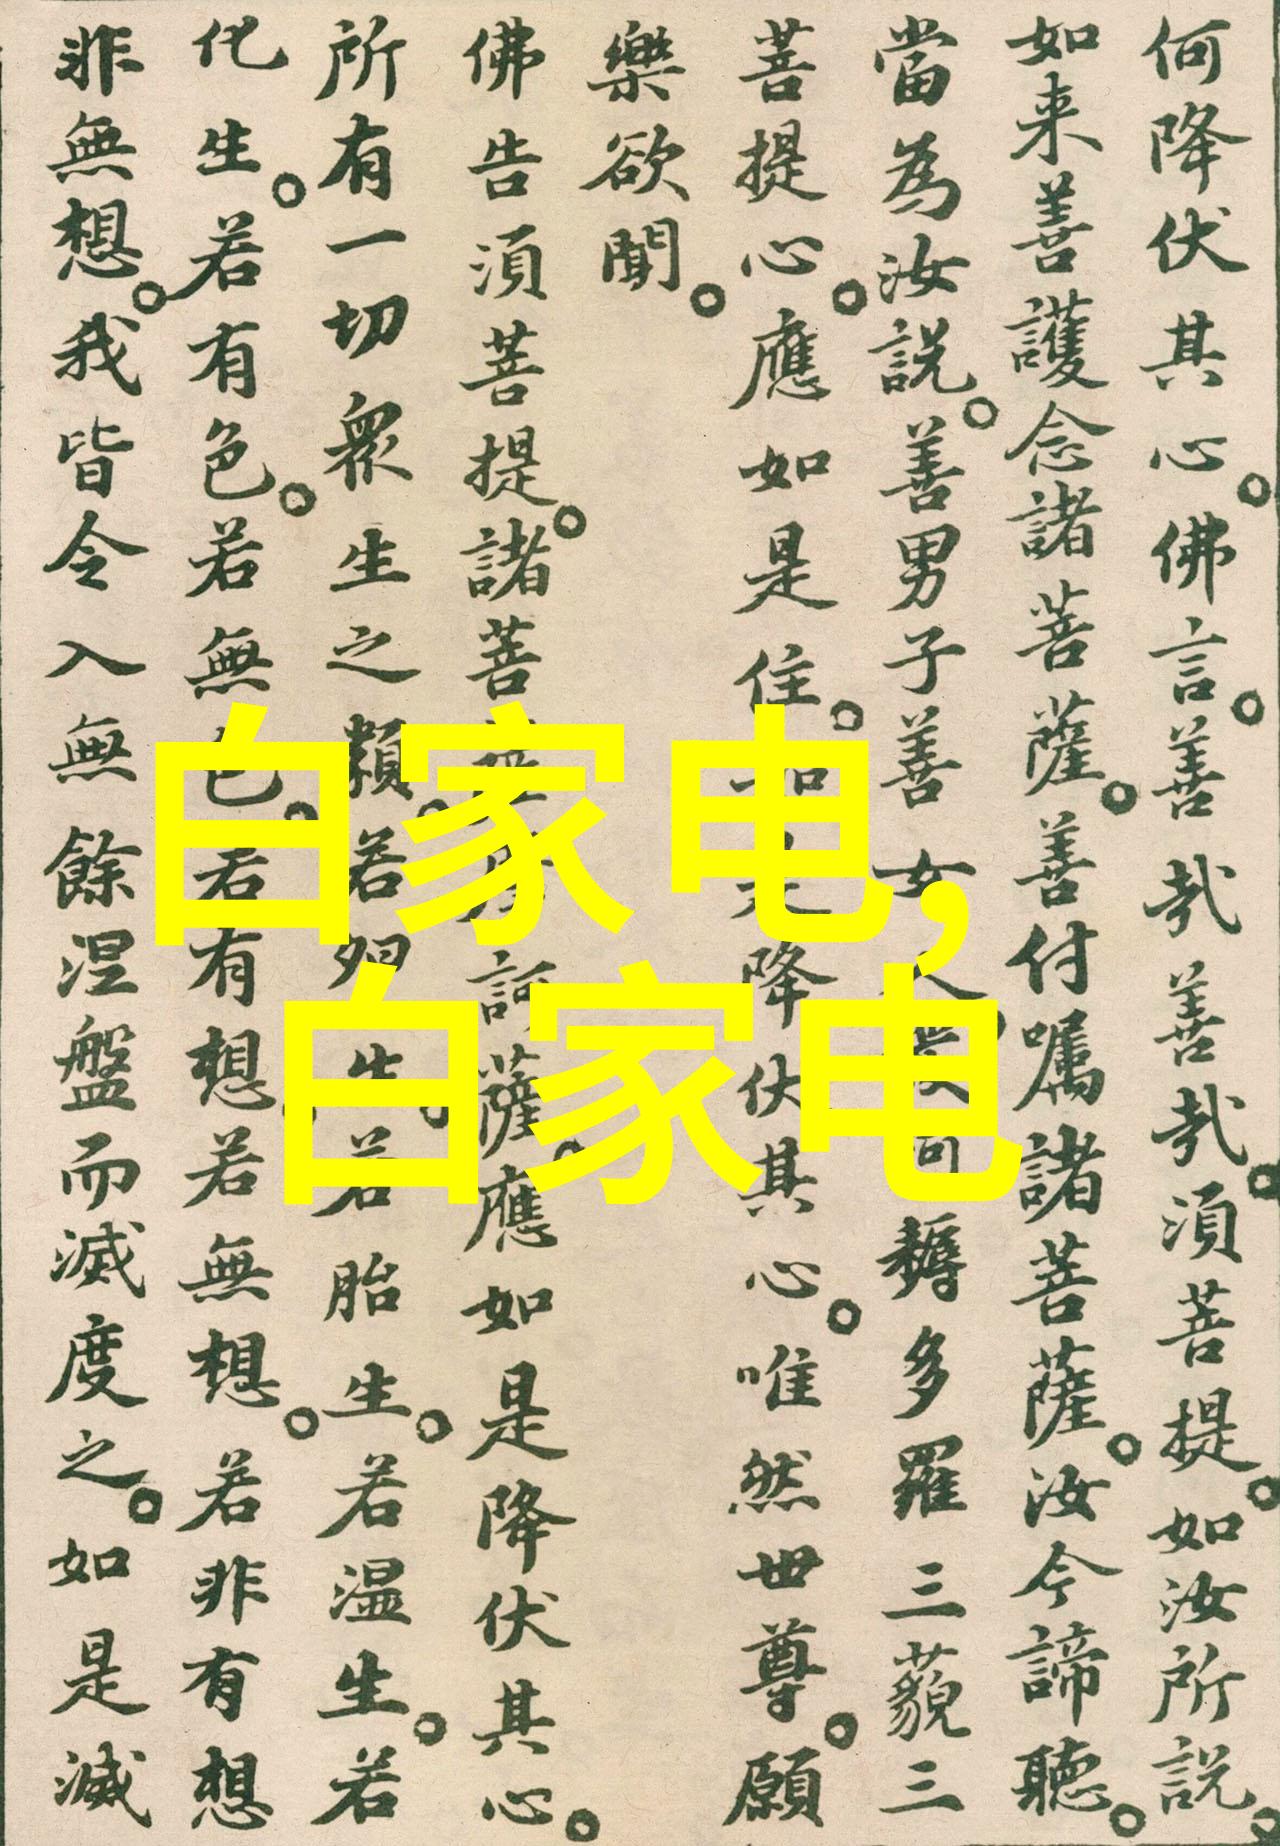 何降伏其心佛言善哉善哉須菩提如汝所説
如来善護念諸菩薩善付嘱諸菩薩汝今諦聽
當為汝説善男子善女人發阿耨多羅三藐三
菩提心應如是住如是降伏其心唯然世尊願
樂欲聞
佛告須菩提諸菩薩摩訶薩應如是降伏其心
所有一切衆生之類若卵生若胎生若温生若
化生若有色若無色若有想若無想若非有想
非無想我皆令入無餘涅盤而滅度之如是滅
白家电,
白家电